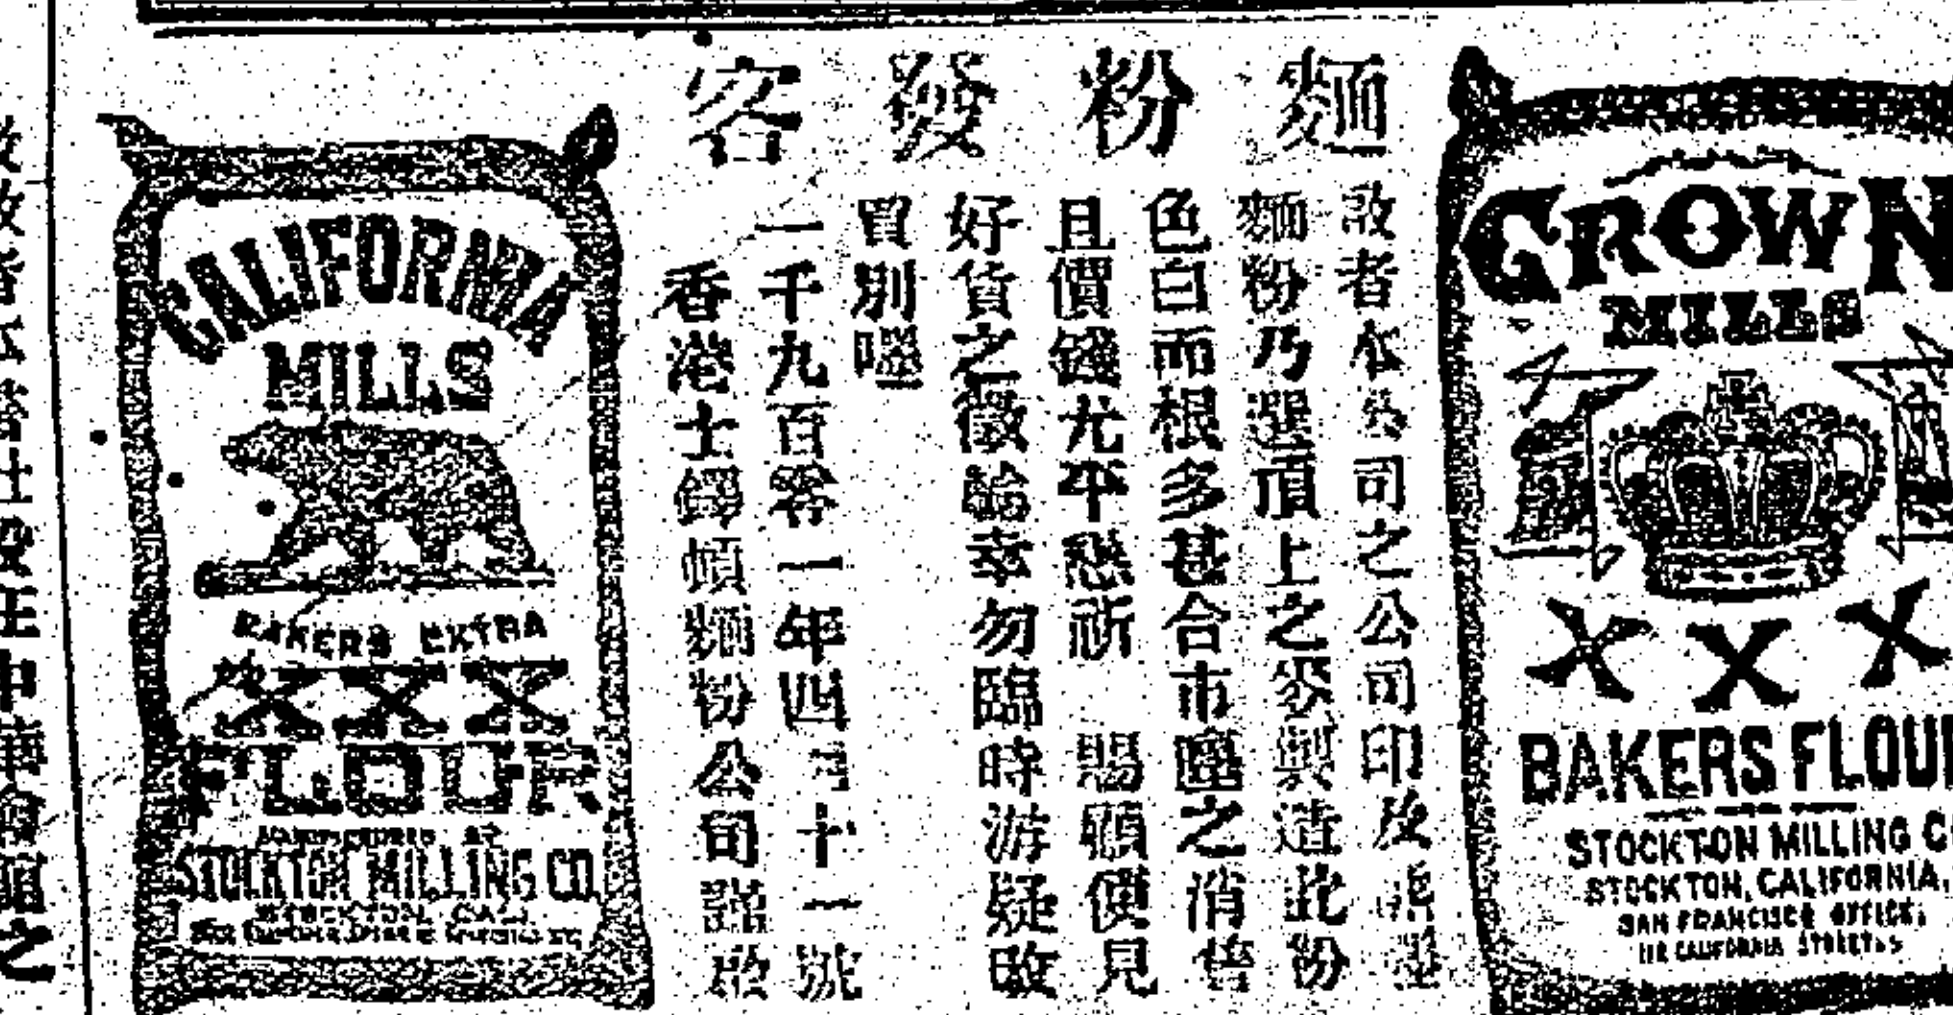 麵粉發客
啟者本公司之公司印及
麵粉乃選頂上之麥與造此粉
色白而根多甚合市塵之消售
且價錢尤平懇祈 賜顧便見
好貨之徵諭幸勿臨時游疑致
冒別嘜
一千九百零一年四月三十一號
香港士鐸頓麵粉公司謹啟
CROWN
MILLS
XXX
BAKERS FLOUR
STOCKTON MILLING CO
STOCKTON, CALIFORNIA,
SAN FRANCISCO OFFICE,
CALIFORNIA STREET
CALIFORNIA
MILLS
BAKERS EXTRA
XXX
FLOUR
MANUFACTURED AT
STOCKTON MILLING CO.
STOCKTON, CAL.